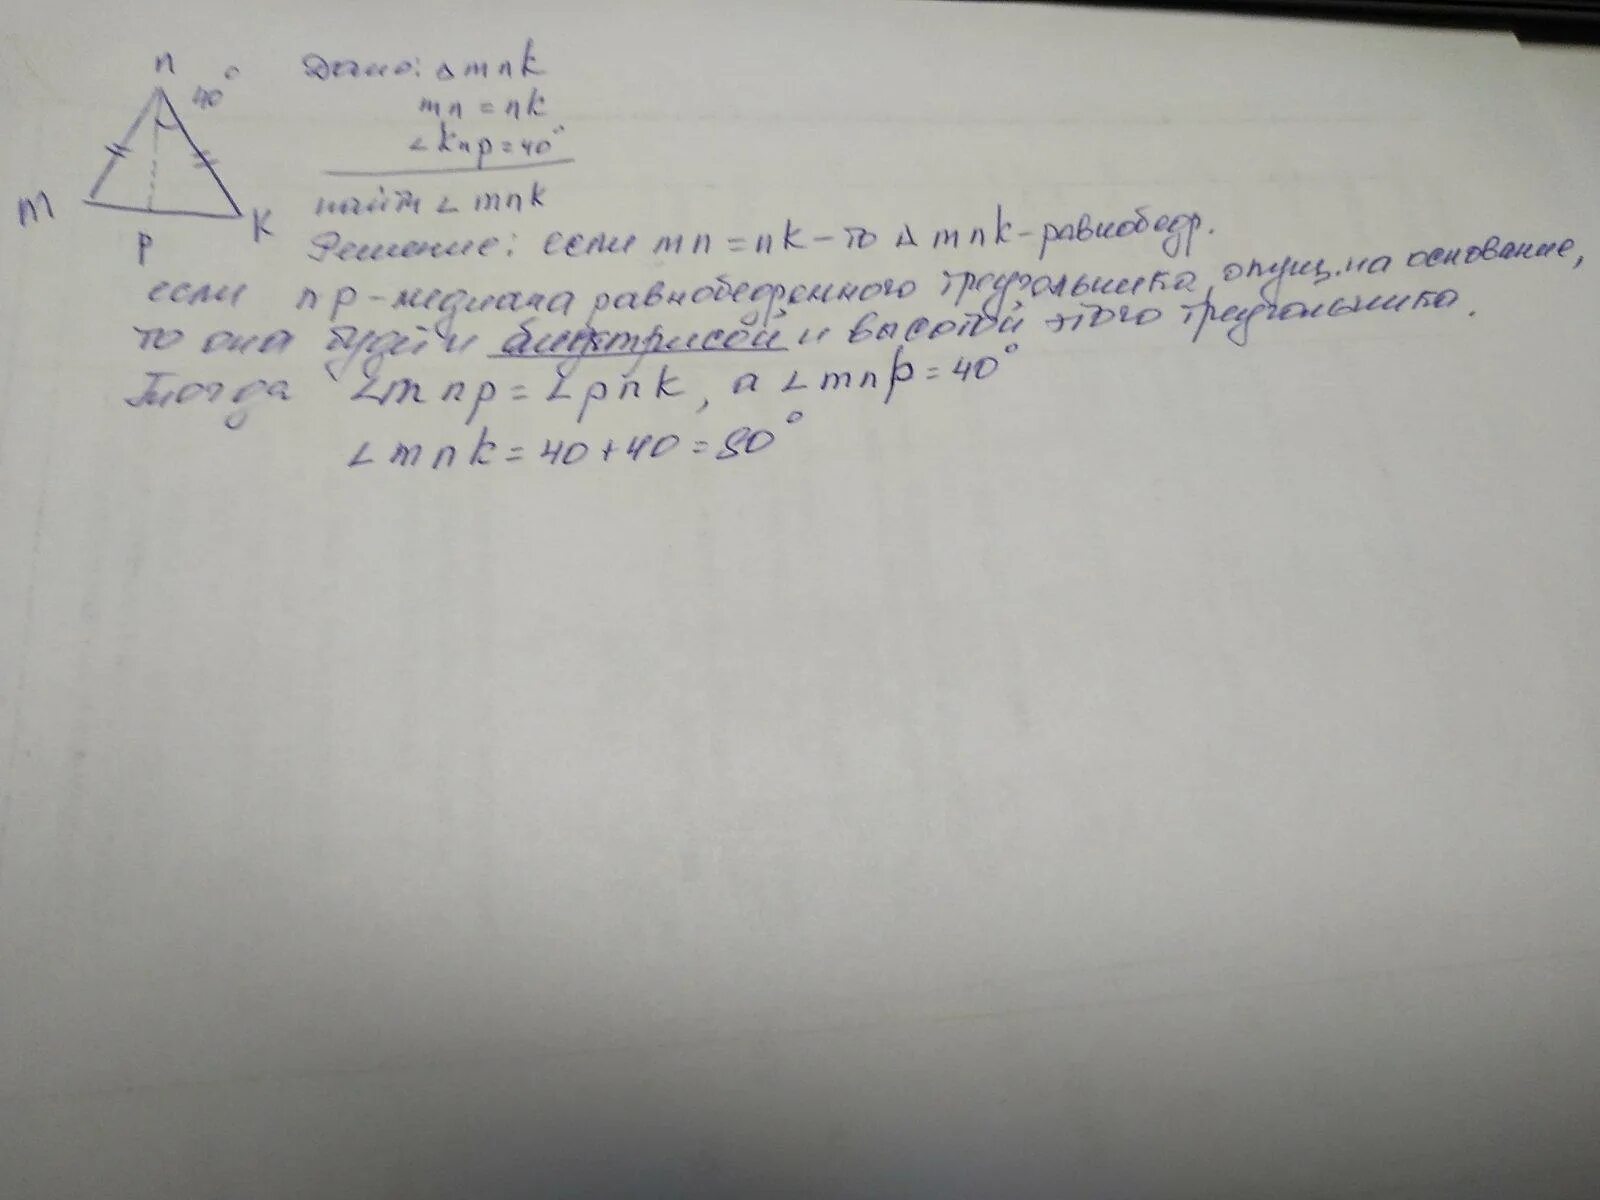 n
40°
M
K
P
Дано: Δ mnk
mn = nk
∠ knp = 40°
найти ∠ mnk
Решение: если mn = nk – то Δ mnk - равнобедр.
если np - медиана равнобедренного треугольника, опущ. на основание,
то она будет и биссектрисой и высотой этого треугольника.
Тогда ∠mnp = ∠pnk, а ∠mnp = 40°
∠ mnk = 40 + 40 = 80°